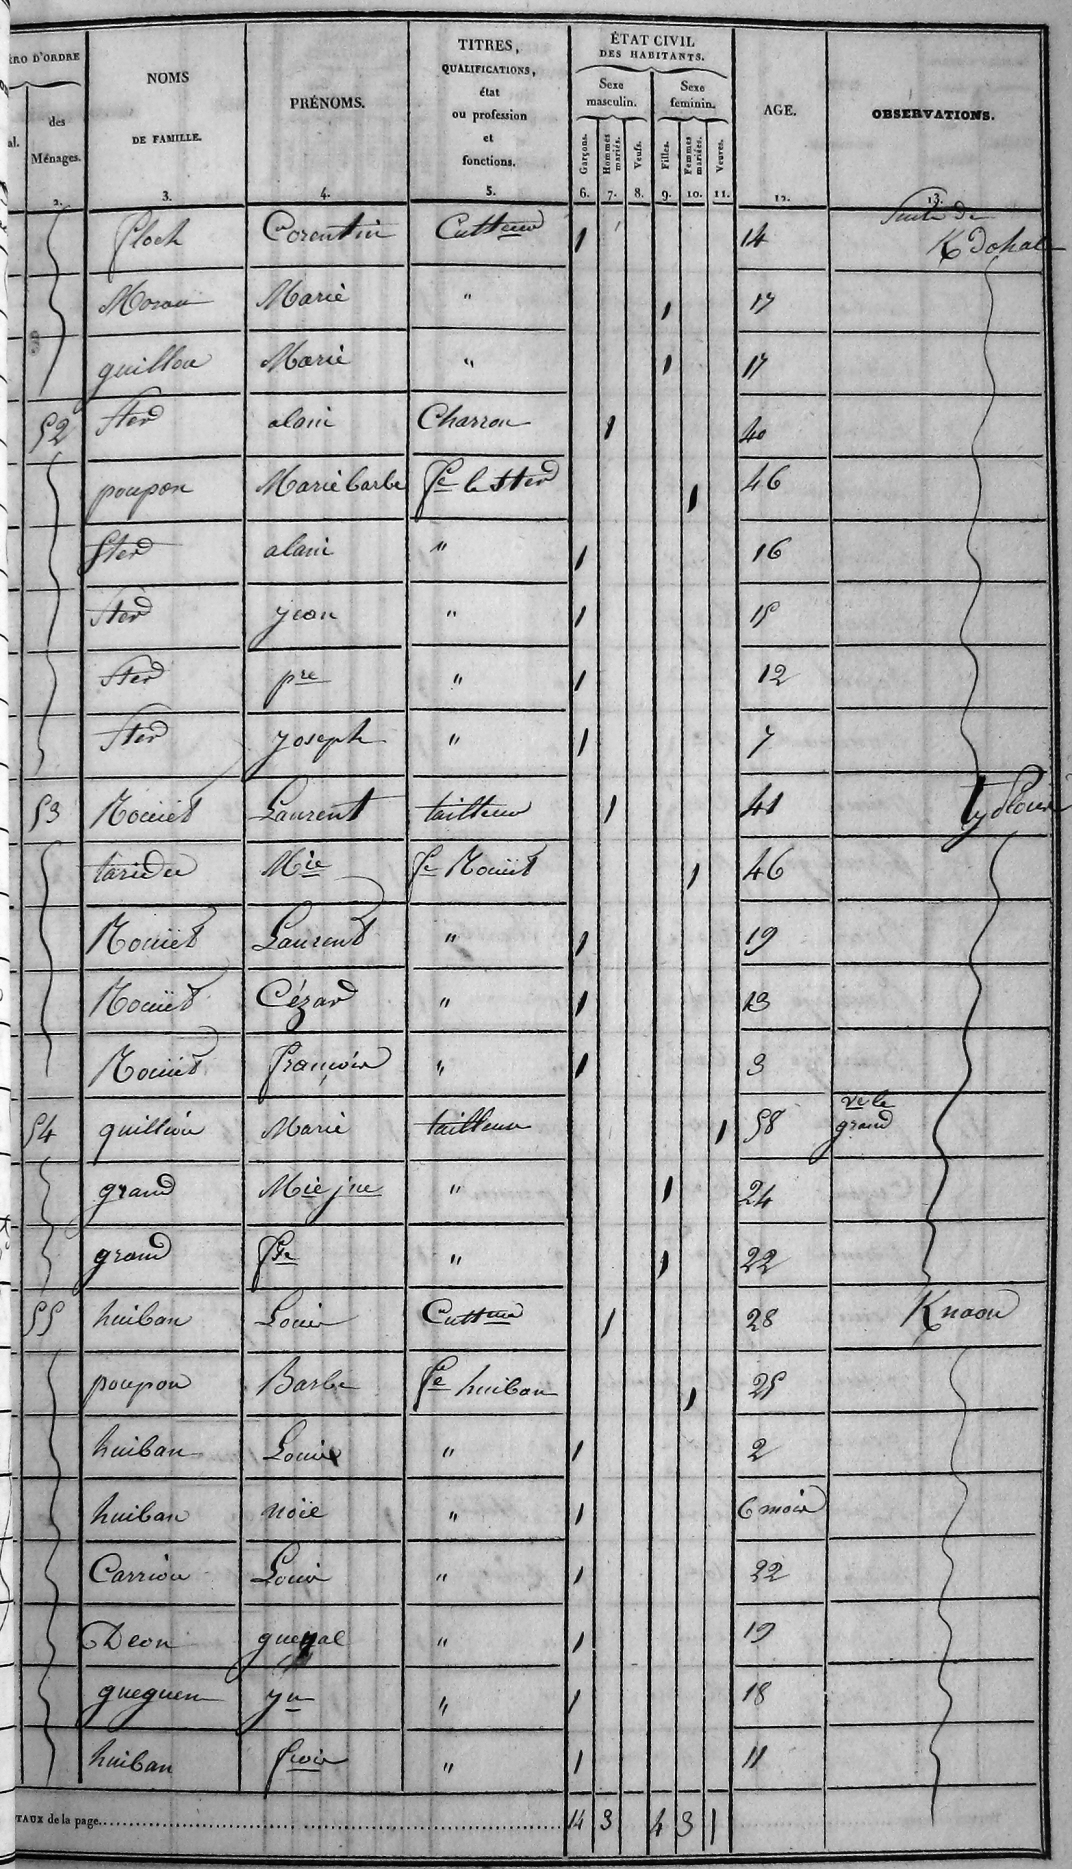 RO D'ORDRE
al.
des
Ménages.
2.
NOMS
DE FAMILLE.
3.
PRÉNOMS.
4.
TITRES,
QUALIFICATIONS,
état
ou profession
et
fonctions.
5.
ÉTAT CIVIL
DES HABITANTS.
Sexe
masculin.
Sexe
feminin.
Garçons.
Hommes mariés.
Veufs.
Filles.
Femmes mariées.
Veuves.
6. 7. 8. 9. 10. 11.
AGE.
12.
OBSERVATIONS.
13.
floch Corentin Cultteur 1 14 Suite de
K dohal
Morau Marie " 1 17
guillou Marie " 1 17
52 Ster alain Charron 1 40
poupon Marie barbe fe le Ster 1 46
Ster alain " 1 16
Ster jean " 1 15
Ster pre " 1 12
Ster joseph " 1 7
53 Laurent tailleur 1 41
Mie fe 1 46
Laurent " 1 19
Cézar " 1 13
françois " 1 3
54 quillivic Marie tailleur 1 58 ve le
grand
grand Mie jne " 1 24
grand fse " 1 22
55 huiban Louis Cultteur 1 28 Knaou
poupon Barbe fe huiban 1 25
huiban Louis " 1 2
huiban noël " 1 6 mois
Carriou Louis " 1 22
" 1 19
gueguen yn " 1 18
huiban frois " 1 11
TAUX de la page. 14 3 4 3 1